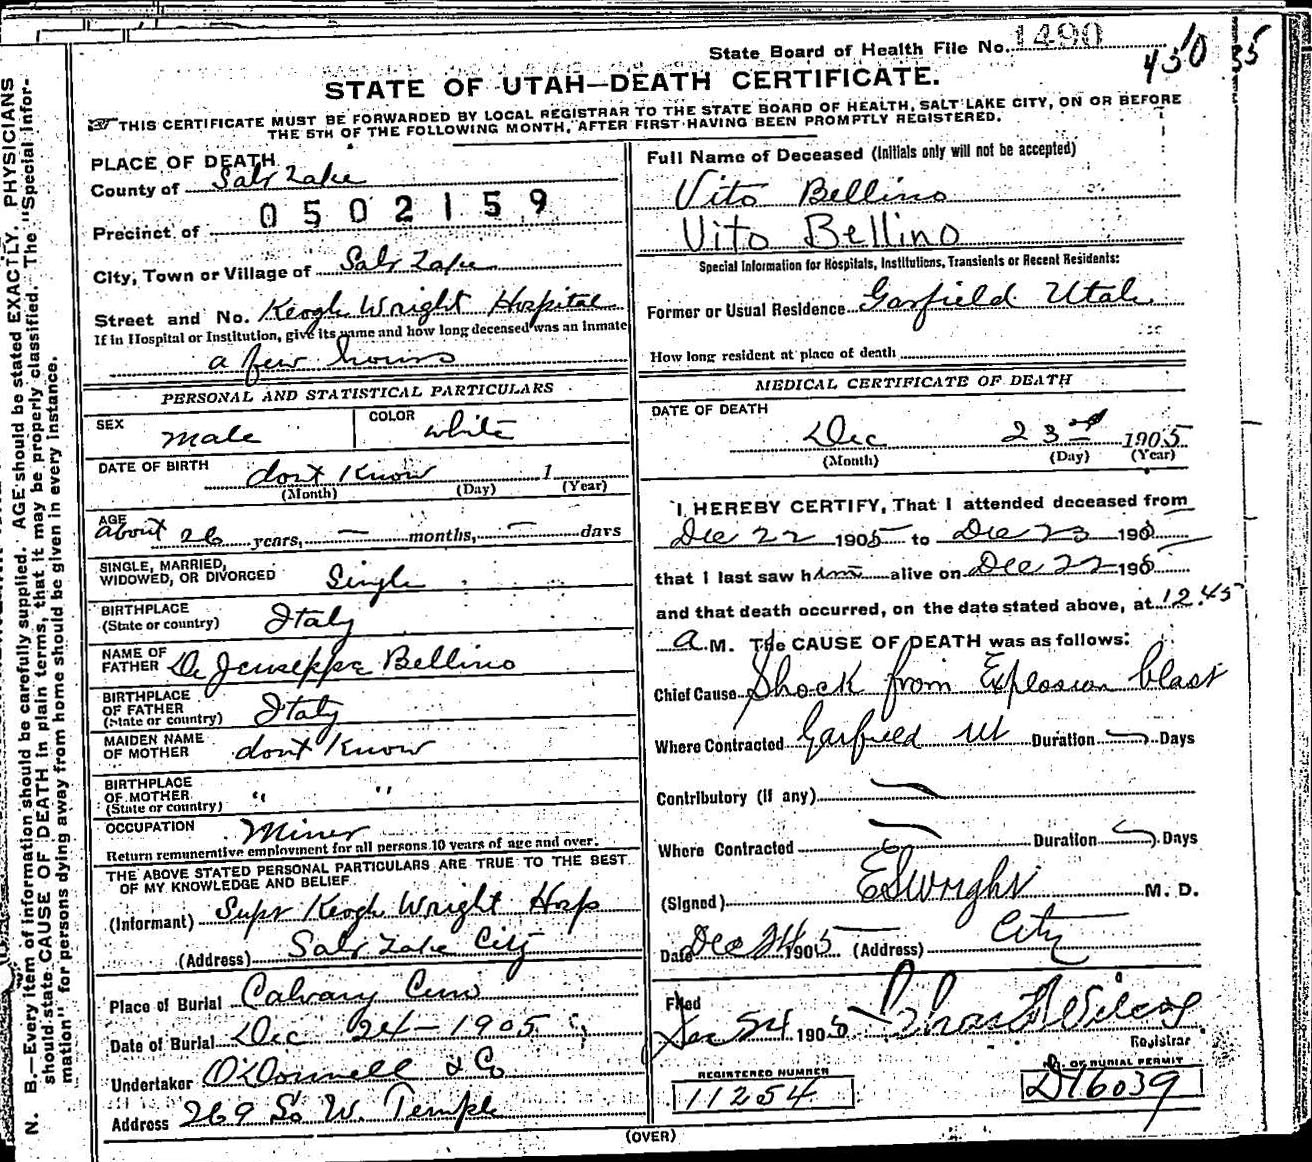 State Board of Health File No. 1490
430 35
STATE OF UTAH—DEATH CERTIFICATE.
THIS CERTIFICATE MUST BE FORWARDED BY LOCAL REGISTRAR TO THE STATE BOARD OF HEALTH, SALT LAKE CITY, ON OR BEFORE
THE 5TH OF THE FOLLOWING MONTH, AFTER FIRST HAVING BEEN PROMPTLY REGISTERED.
PLACE OF DEATH
County of Salt Lake
0502159
Precinct of
City, Town or Village of Salt Lake
Street and No. Keogh Wright Hospital
If in Hospital or Institution, give its name and how long deceased was an inmate
a few hours
PERSONAL AND STATISTICAL PARTICULARS
SEX male COLOR white
DATE OF BIRTH dont Know 1
(Month) (Day) (Year)
AGE about 26 years, — months, — days
SINGLE, MARRIED,
WIDOWED, OR DIVORCED Single
BIRTHPLACE
(State or country) Italy
NAME OF
FATHER De Jeuseppe Bellino
BIRTHPLACE
OF FATHER
(State or country) Italy
MAIDEN NAME
OF MOTHER dont Know
BIRTHPLACE
OF MOTHER
(State or country) " "
OCCUPATION Miner
Return remunerative employment for all persons 10 years of age and over.
THE ABOVE STATED PERSONAL PARTICULARS ARE TRUE TO THE BEST
OF MY KNOWLEDGE AND BELIEF
(Informant) Supt Keogh Wright Hosp
(Address) Salt Lake City
Place of Burial Calvary Cem
Date of Burial Dec 24 - 1905
Undertaker O'Donnell & Co
Address 269 So W. Temple
Full Name of Deceased (Initials only will not be accepted)
Vito Bellino
Vito Bellino
Special Information for Hospitals, Institutions, Transients or Recent Residents:
Former or Usual Residence Garfield Utah
How long resident at place of death
MEDICAL CERTIFICATE OF DEATH
DATE OF DEATH
Dec 23rd 1905
(Month) (Day) (Year)
I HEREBY CERTIFY, That I attended deceased from
Dec 22 1905 to Dec 23 1905
that I last saw him alive on Dec 22 1905
and that death occurred, on the date stated above, at 12.45
a. M. The CAUSE OF DEATH was as follows:
Chief Cause Shock from Explosion blast
Where Contracted Garfield Ut Duration Days
Contributory (If any)
Where Contracted Duration Days
(Signed) ESWright M. D.
Date Dec 24 1905 (Address) City
Filed
Dec 24 1905 Wilcox
Registrar
REGISTERED NUMBER
11254
NO. OF BURIAL PERMIT
D16039
(OVER)
N. B.—Every item of information should be carefully supplied. AGE should be stated EXACTLY. PHYSICIANS
should state CAUSE OF DEATH in plain terms, that it may be properly classified. The "Special Infor-
mation" for persons dying away from home should be given in every instance.